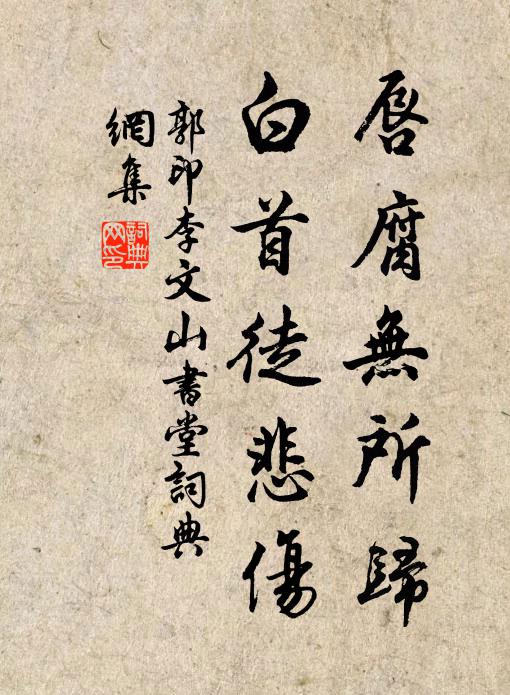 唇腐無所歸
白首徒悲傷
郭印李文山書堂詞典
網集
詞典
网印